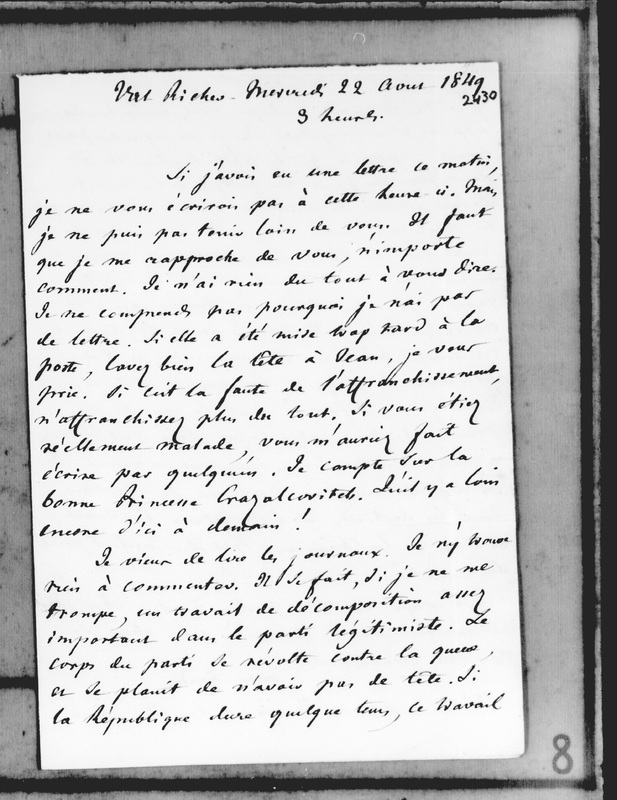 Val Richer. Mercredi 22 Août 1849
2430
3 heures.
Si j'avois eu une lettre ce matin,
je ne vous écrirois pas à cette heure-ci. Mais
je ne puis pas tenir loin de vous. Il faut
que je me rapproche de vous, n'importe
comment. Je n'ai rien du tout à vous dire.
Je ne comprends pas pourquoi je n'ai pas
de lettre. Si elle a été mise trop tard à la
poste, lavez bien la tête à Jean, je vous
prie. Si c'est la faute de l'affranchissement,
n'affranchissez plus du tout. Si vous étiez
réellement malade, vous m'auriez fait
écrire par quelqu'un. Je compte sur la
bonne Princesse Crazalcovitch. Qu'il y a loin
encore d'ici à demain !
Je viens de lire les journaux. Je n'y trouve
rien à commenter. Il se fait, si je ne me
trompe, un travail de décomposition assez
important dans le parti légitimiste. Le
corps du parti se révolte contre la queue,
et se plaint de n'avoir pas de tête. Si
la République dure quelque tems, ce travail
8